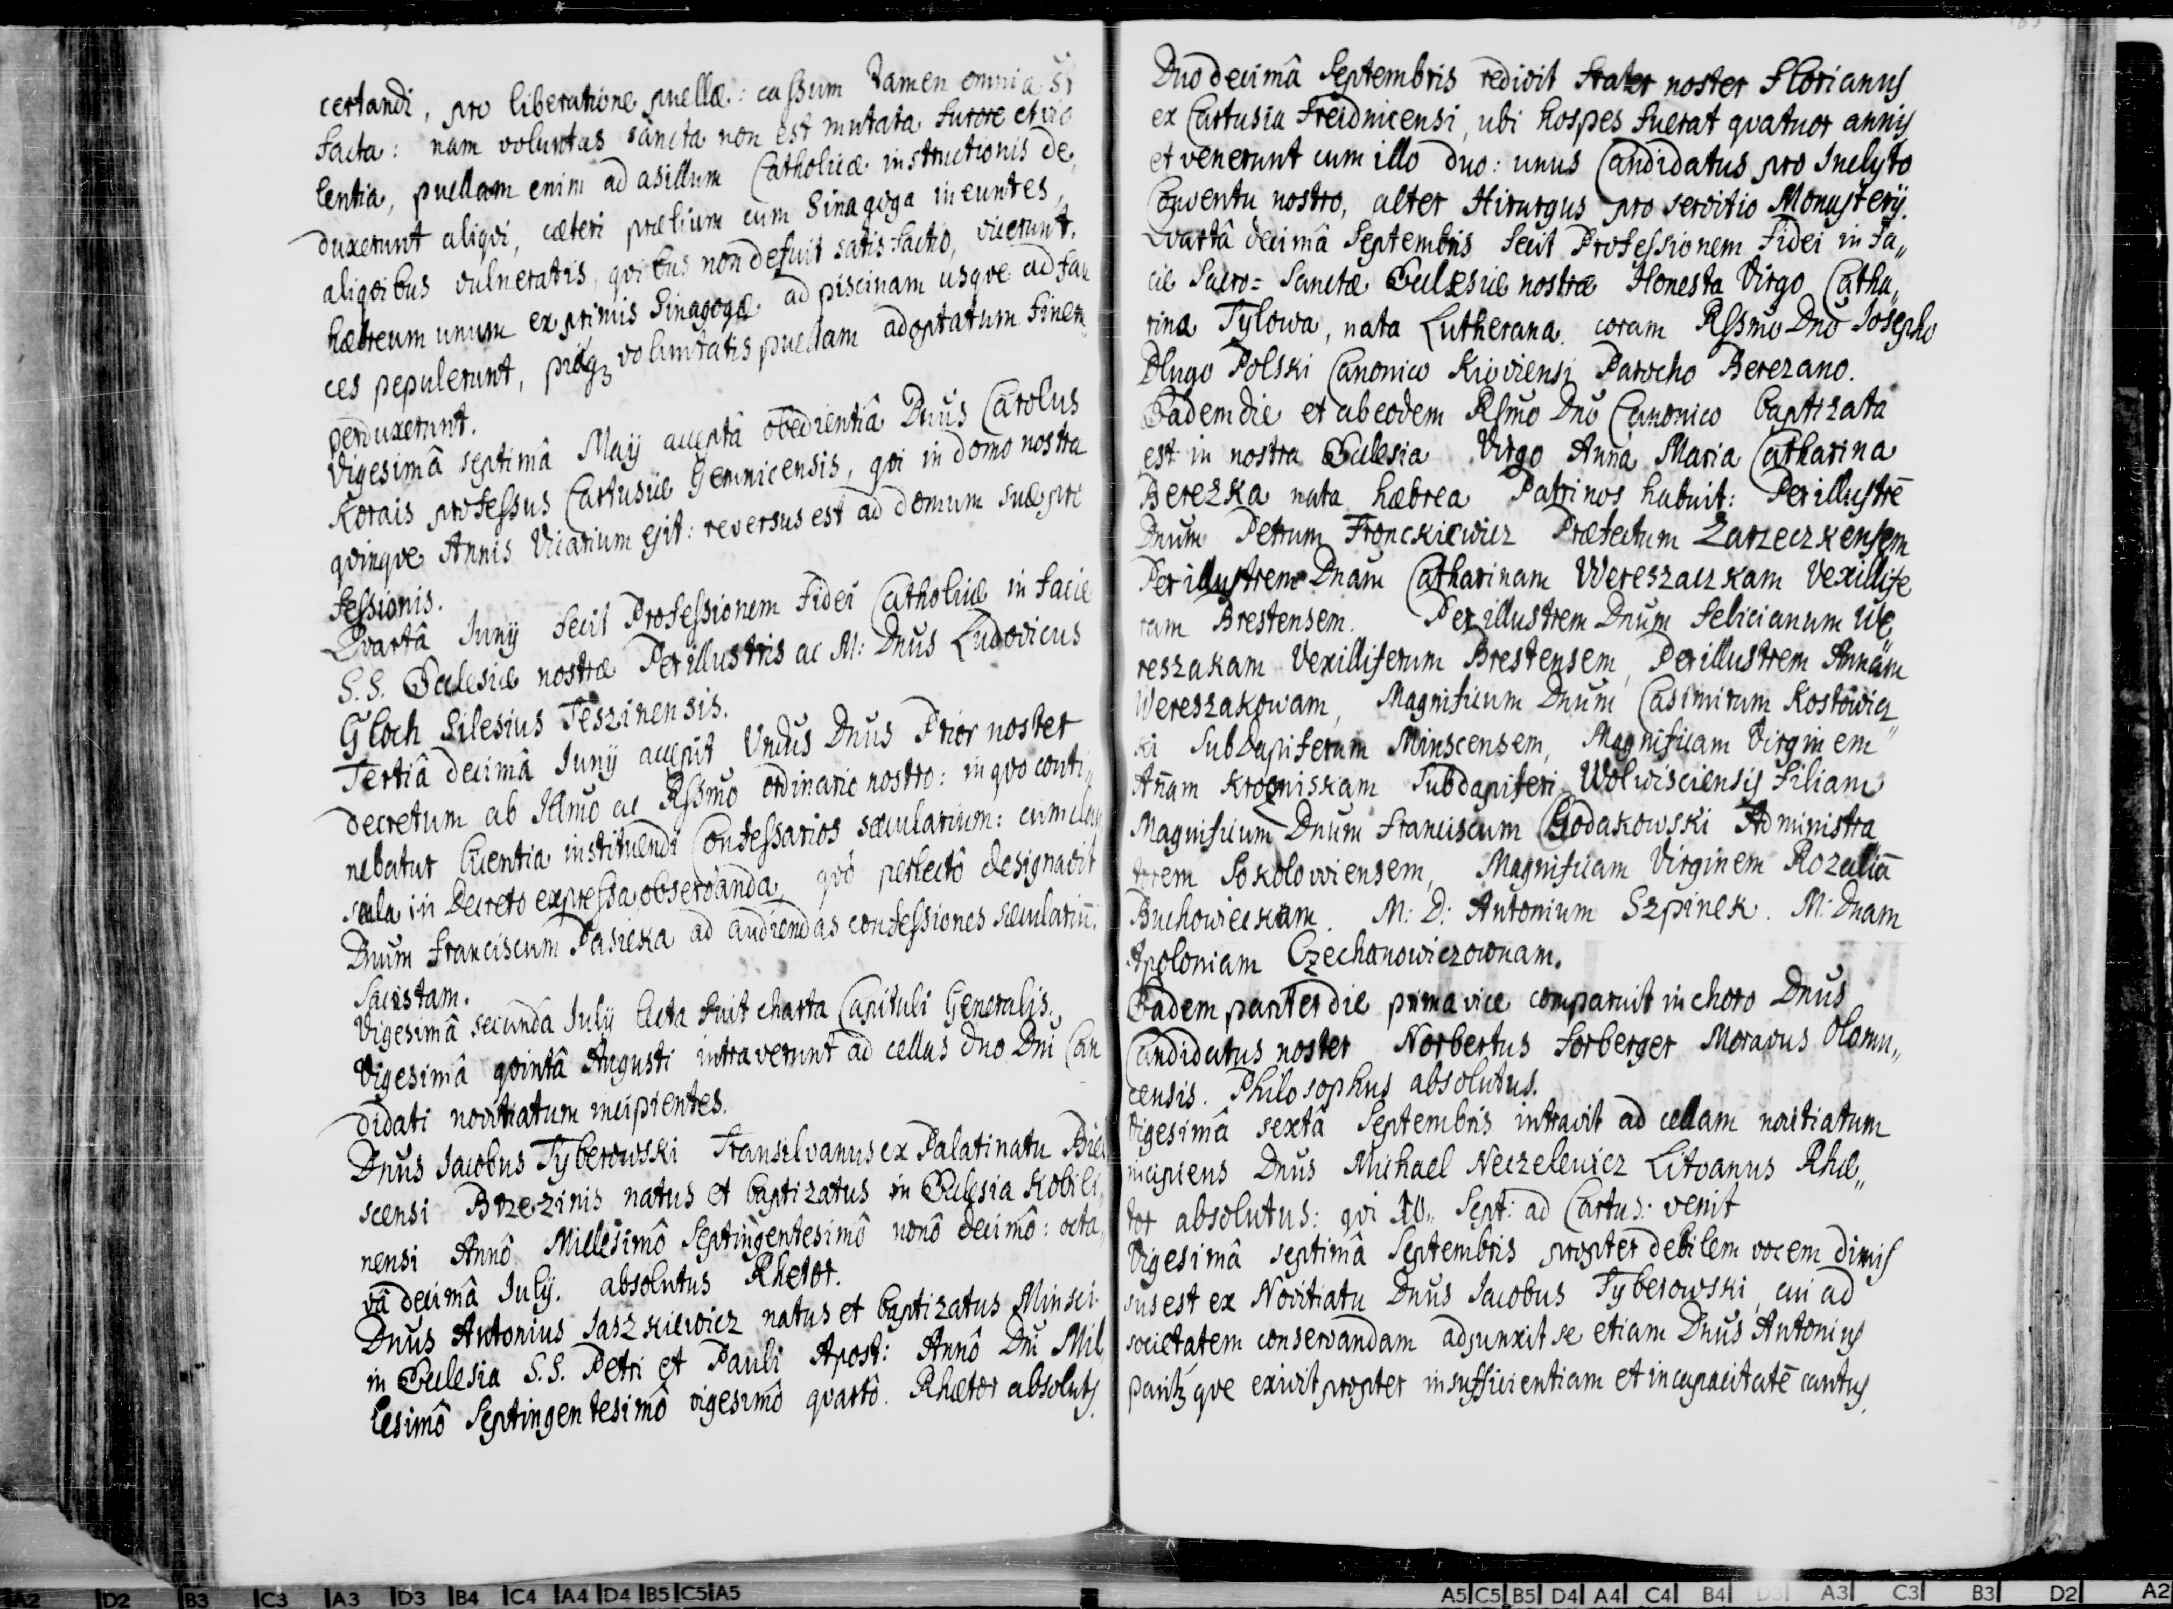 certandi, pro liberatione puellæ: cassum tamen omnia
facta: nam voluntas sancta non est mutata furore et vio
lentia, puellam enim ad asillum Catholicæ instructionis de„
duxerunt aliqvi, cæteri prælium cum Sinagoga ineuntes,
aliqvibus vulneratis, qvibus non defuit satisfactio, vicerunt,
hæbreum unum ex primis Sinagogæ ad piscinam usqve ad fau
ces pepulerunt, piæqz voluntatis puellam ad optatum finem
perduxerunt.
Vigesimâ septimâ Maÿ acceptâ obedientiâ Dnus Carolus
Korais professus Cartusiæ Gemnicensis, qvi in domo nostra
qvinqve Annis Vicarium egit: reversus est ad domum suæ pro
fessionis.
Qvartâ Junÿ fecit Professionem Fidei Catholicæ in facie
S.S. Ecclesiæ nostræ Perillustris ac M: Dnus Ludovicus
Gloch Silesius Teszinensis.
Tertiâ decimâ Junÿ accepit Vndus Dnus Prior noster
decretum ab Illmo ac Rssmo ordinario nostro: in qvo conti„
nebatur licentia instituendi Confessarios sæcularium: cum clau
sula in Decreto expressa observanda, qvô perlectô designavit
Dnum Franciscum Pasieka ad audiendas confessiones sæculariũ
Sacristam.
Vigesimâ secunda Julÿ lecta fuit charta Capituli Generalis.
Vigesimâ qvintâ Augusti intraverunt ad cellas duo Dni Can
didati novitiatum incipientes.
Dnus Jacobus Tyberowski Transilvanus ex Palatinatu
scensi Brzezinis natus et baptizatus in Ecclesia Kobili„
nensi Annô Millesimô Septingentesimô nonô decimô: octa„
vâ decimâ Julÿ. absolutus Rhetor.
Dnus Antonius Jaszkiewicz natus et baptizatus Minsci
in Ecclesia S.S. Petri et Pauli Apost: Annô Dni Mil„
lesimô Septingentesimô vigesimô qvartô. Rhætor absolutꝰ.
Duodecimâ Septembris redivit frater noster Florianus
ex Cartusia Freidnicensi, ubi hospes fuerat qvatuor annis
et venerunt cum illo duo: unus Candidatus pro Inclyto
Conventu nostro, alter Hirurgus pro servitio Monasterÿ.
Qvartâ decimâ Septembris fecit Professionem Fidei in fa„
cie Sacro=Sanctæ Ecclesiæ nostræ Honesta Virgo Catha„
rina Tylowa, nata Lutherana. coram Rssmo Dno Josepho
Dlugo Polski Canonico Kioviensi Parocho Berezano.
Eadem die et ab eodem Rssmo Dno Canonico baptizata
est in nostra Ecclesia Virgo Anna Maria Catharina
Berezka nata hæbrea Patrinos habuit: Perillustrẽ
Dnum Petrum Fronckiewicz Præfectum Zarzeczkensem
Perillustrem Dnam Catharinam Wereszaczkam Vexillife
ram Brestensem. Perillustrem Dnum Felicianum We„
reszakam Vexilliferum Brestensem, Perillustrem Annam
Wereszakowam, Magnificum Dnum Casimirum Kostowicz
ki SubDapiferum Minscensem, Magnificam Virginem
Añam Krogniskam Subdapiferi Wolwisciensis filiam
Magnificum Dnum Franciscum Chodakowski Administra
torem Sokolowiensem, Magnificam Virginem Rozaliã
Buchowieckam. M: D: Antonium Szpinek. M: Dnam
Apoloniam Czechanowiczownam.
Eadem pariter die prima vice comparuit in choro Dnus
Candidatus noster Norbertus Forberger Moravus Olomu„
censis. Philosophus absolutus.
Vigesimâ sextâ Septembris intravit ad cellam novitiatum
incipiens Dnus Michael Neczelewicz Litvanus Rhæ„
tor absolutus: qvi Sept: ad Cartus: venit
Vigesimâ septimâ Septembris propter debilem vocem dimis
sus est ex Novitiatu Dnus Jacobus Tyberowski, cui ad
societatem conservandam adjunxit se etiam Dnus Antonius
qve exivit propter insufficientiam et incapacitatẽ cantus.